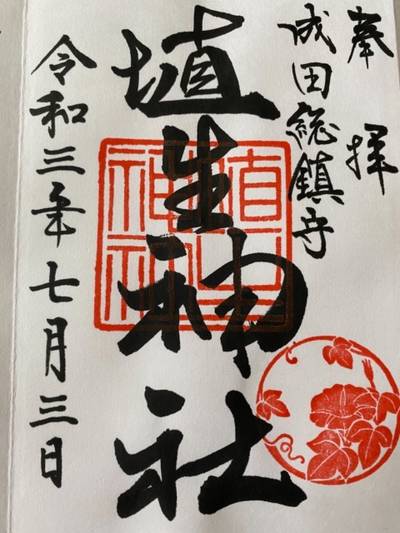 奉拝
成田総鎮守
埴生神社
令和三年七月三日
埴生神社